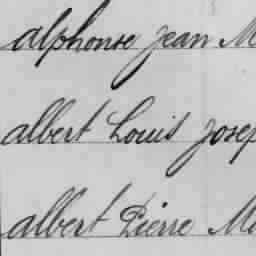 alphonse Jean M
albert Louis Josep
albert Pierre Ma